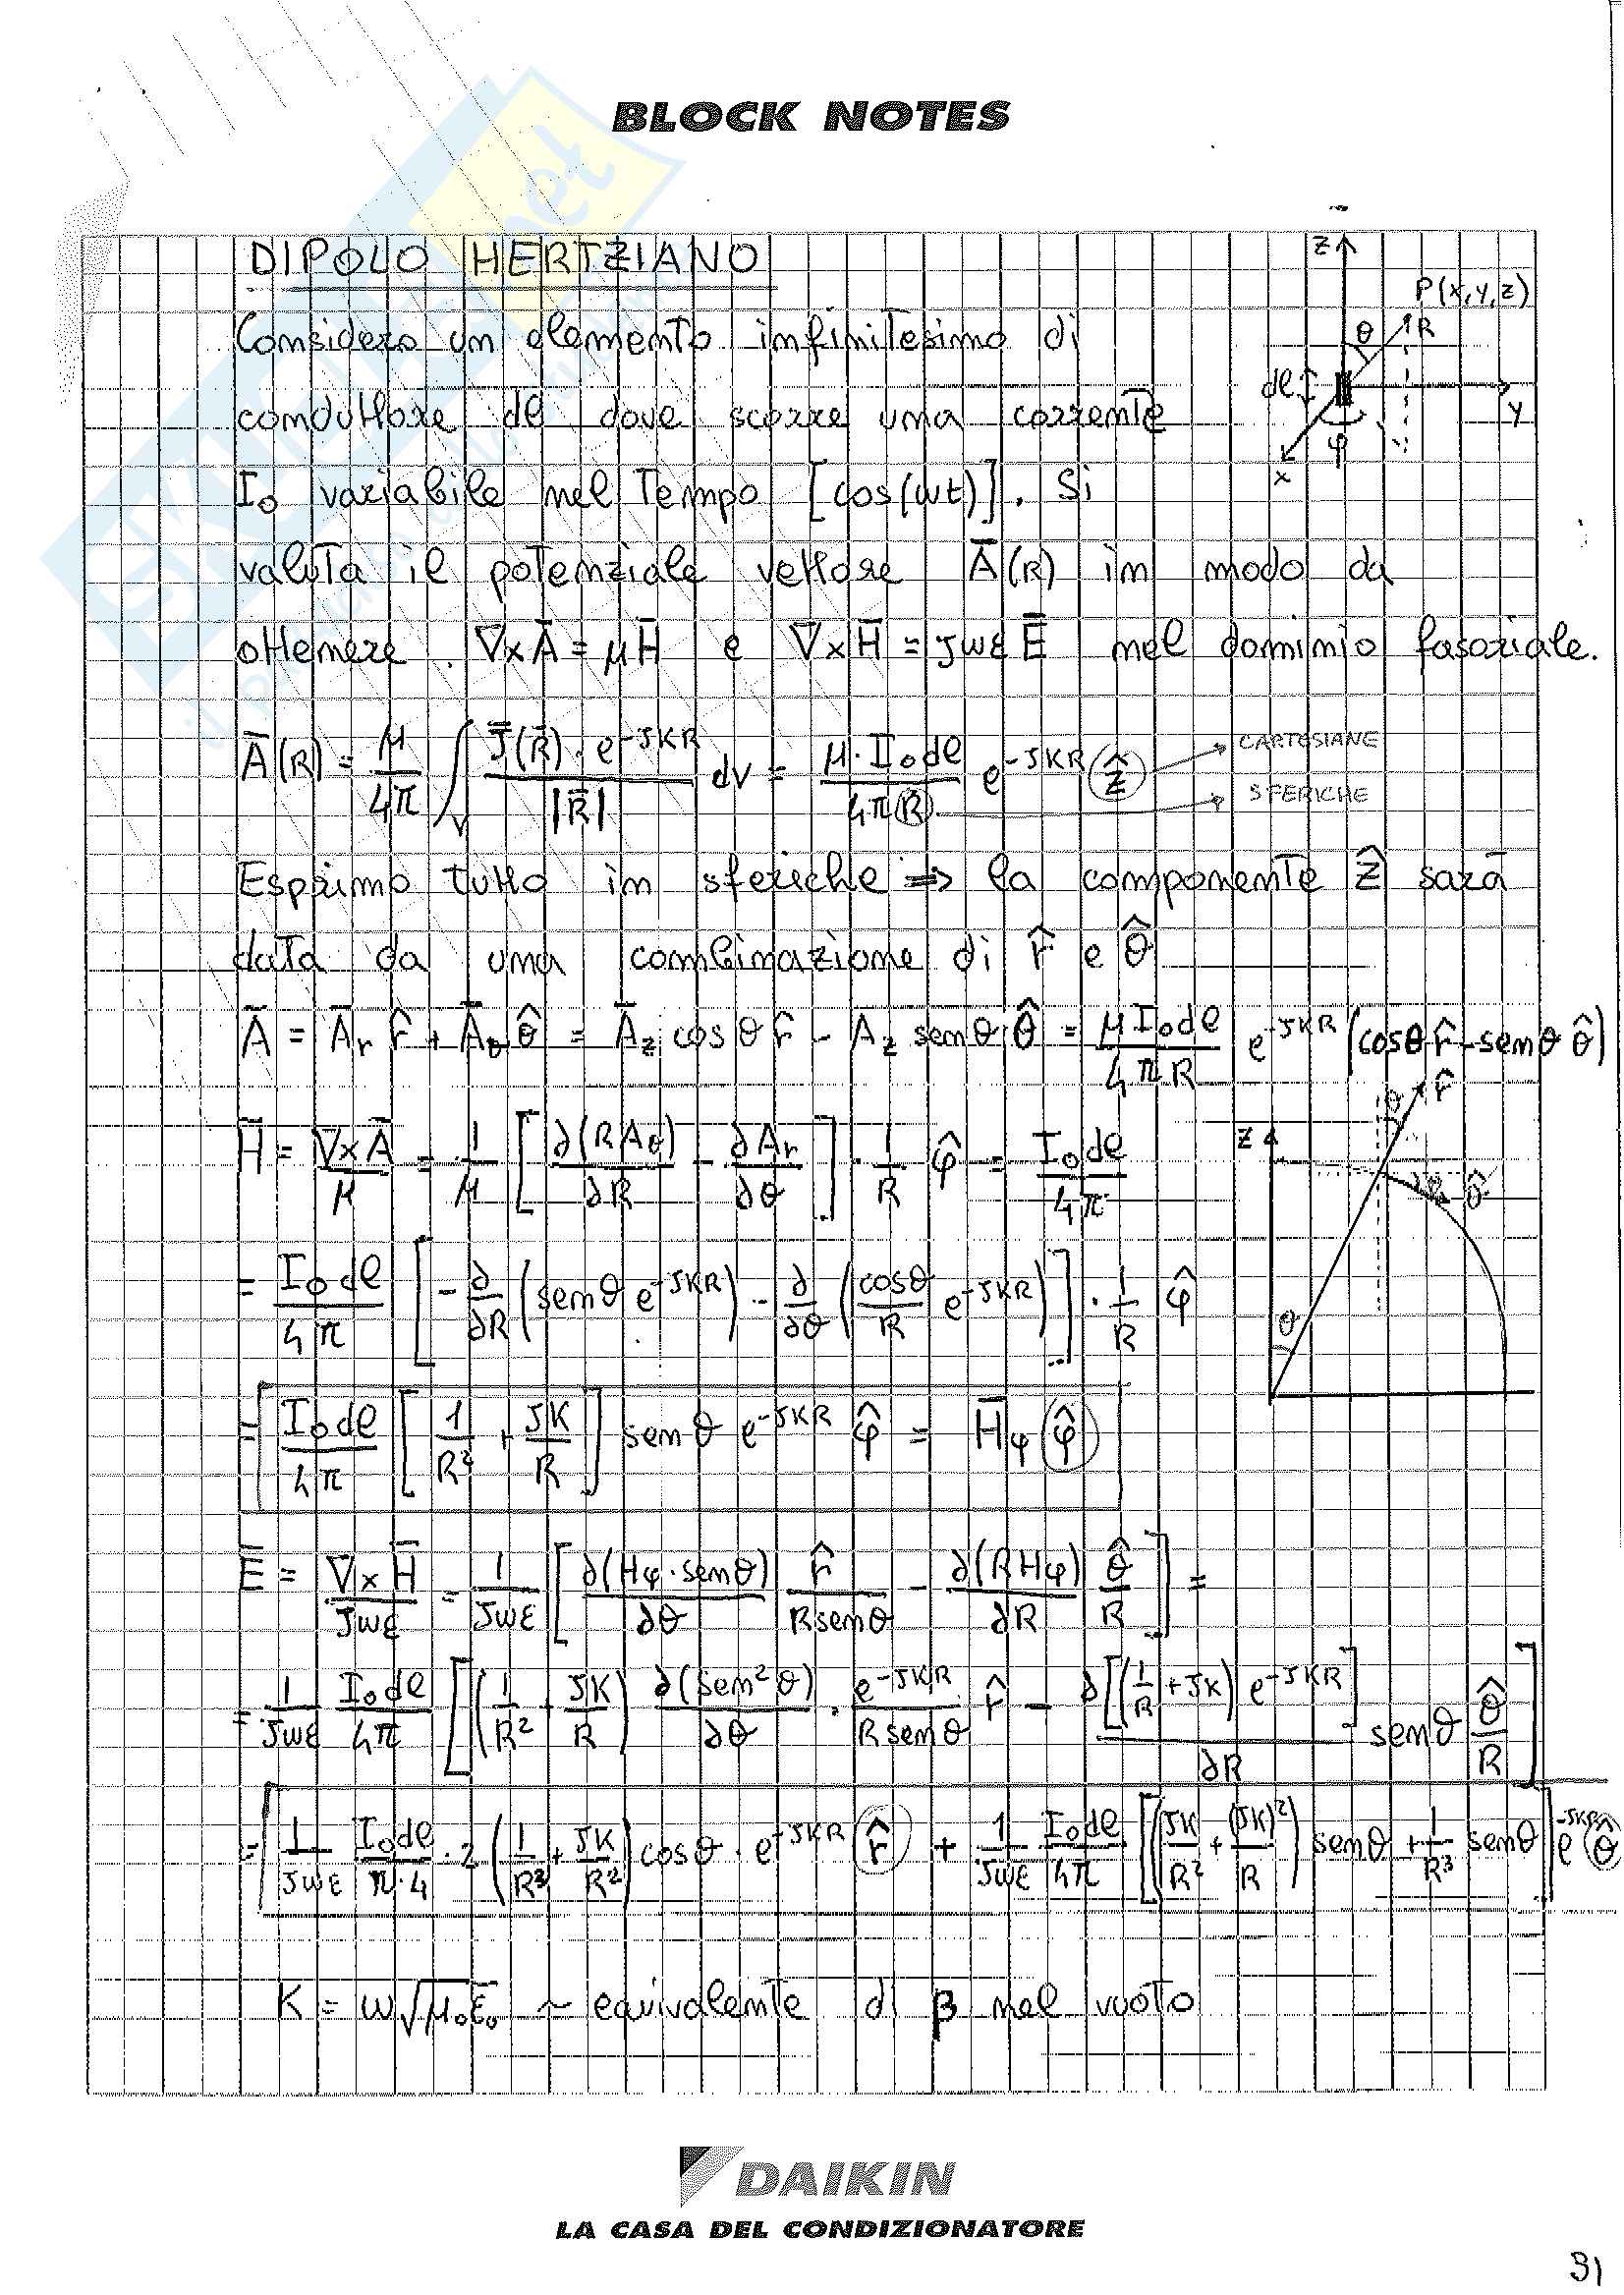 BLOCK NOTES
DIPOLO HERTZIANO
Considero un elemento infinitesimo di
conduttore dl dove scorre una corrente
I₀ variabile nel tempo [cos(ωt)]. Si
valuta il potenziale vettore A̅(R) in modo da
ottenere ∇×A̅ = μH̅ e ∇×H̅ = jωε E̅ nel dominio fasoriale.
z
P(x,y,z)
θ R
dl
y
φ
x
A̅(R) = μ/4π ∫v J̅(R̅)·e^-jKR / |R̅| dv = μ·I₀dl / 4πR e^-jKR ẑ → CARTESIANE
→ SFERICHE
Esprimo tutto in sferiche ⇒ la componente ẑ sarà
data da una combinazione di r̂ e θ̂
A̅ = A̅r r̂ + A̅θ θ̂ = A̅z cosθ r̂ - Az senθ θ̂ = μI₀dl / 4πR e^-jKR (cosθ r̂ - senθ θ̂)
H̅ = ∇×A̅ / μ = 1/μ [∂(RAθ)/∂R - ∂Ar/∂θ] · 1/R φ̂ = I₀dl / 4π
= I₀dl / 4π [-∂/∂R (senθ e^-jKR) - ∂/∂θ (cosθ/R e^-jKR)] · 1/R φ̂
= I₀dl / 4π [1/R² + jK/R] senθ e^-jKR φ̂ = H̅φ φ̂
θ r̂
z
θ θ̂
θ
E̅ = ∇×H̅ / jωε = 1/jωε [∂(Hφ·senθ)/∂θ r̂/Rsenθ - ∂(RHφ)/∂R θ̂/R] =
= 1/jωε I₀dl/4π [(1/R² + jK/R) ∂(sen²θ)/∂θ · e^-jKR/Rsenθ r̂ - ∂[(1/R + jK) e^-jKR]/∂R senθ θ̂/R]
= 1/jωε I₀dl/π·4 · 2 (1/R³ + jK/R²) cosθ · e^-jKR r̂ + 1/jωε I₀dl/4π [(jK/R² + (jK)²/R) senθ + 1/R³ senθ] e^-jKR θ̂
K = ω√μ₀ε₀ ~ equivalente di β nel vuoto
DAIKIN
LA CASA DEL CONDIZIONATORE
31